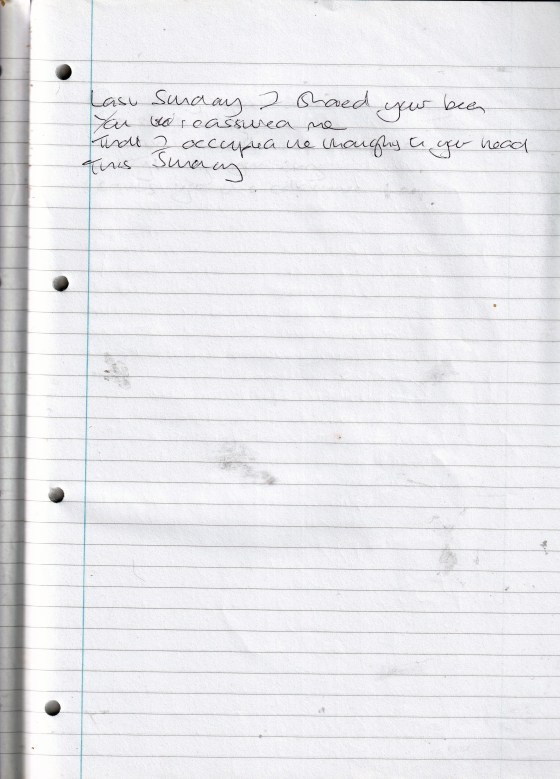 Last Sunday I shared your bed
You reassured me
That I occupied the thoughts in your head
This Sunday